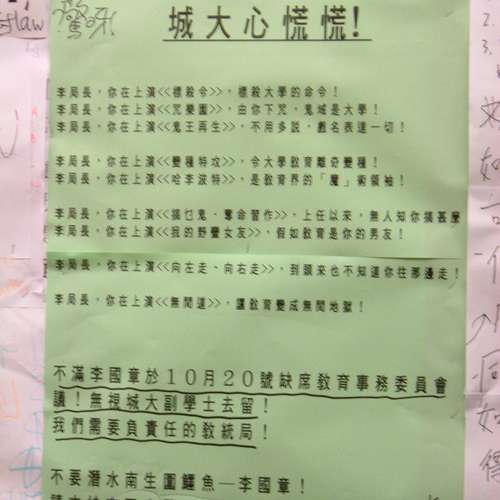 驚呀!
城大心慌慌!
李局長,你在上演<<標殺令>>,標殺大學的命令!
李局長,你在上演<<咒樂園>>,由你下咒,鬼域是大學!
李局長,你在上演<<鬼王再生>>,不用多説,戲名表達一切!
李局長,你在上演<<變種特攻>>,令大學敎育離奇變種!
李局長,你在上演<<哈李波特>>,是敎育界的「魔」術領袖!
李局長,你在上演<<搞乜鬼、奪命習作>>,上任以來,無人知你搞甚麼
李局長,你在上演<<我的野蠻女友>>,假如敎育是你的男友!
李局長,你在上演<<向左走、向右走>>,到頭來也不知道你往那邊走!
李局長,你在上演<<無間道>>,讓敎育變成無間地獄!
不滿李國章於10月20號缺席敎育事務委員會
議!無視城大副學士去留!
我們需要負責任的敎統局!
不要潛水南生圍鱷魚—李國章!